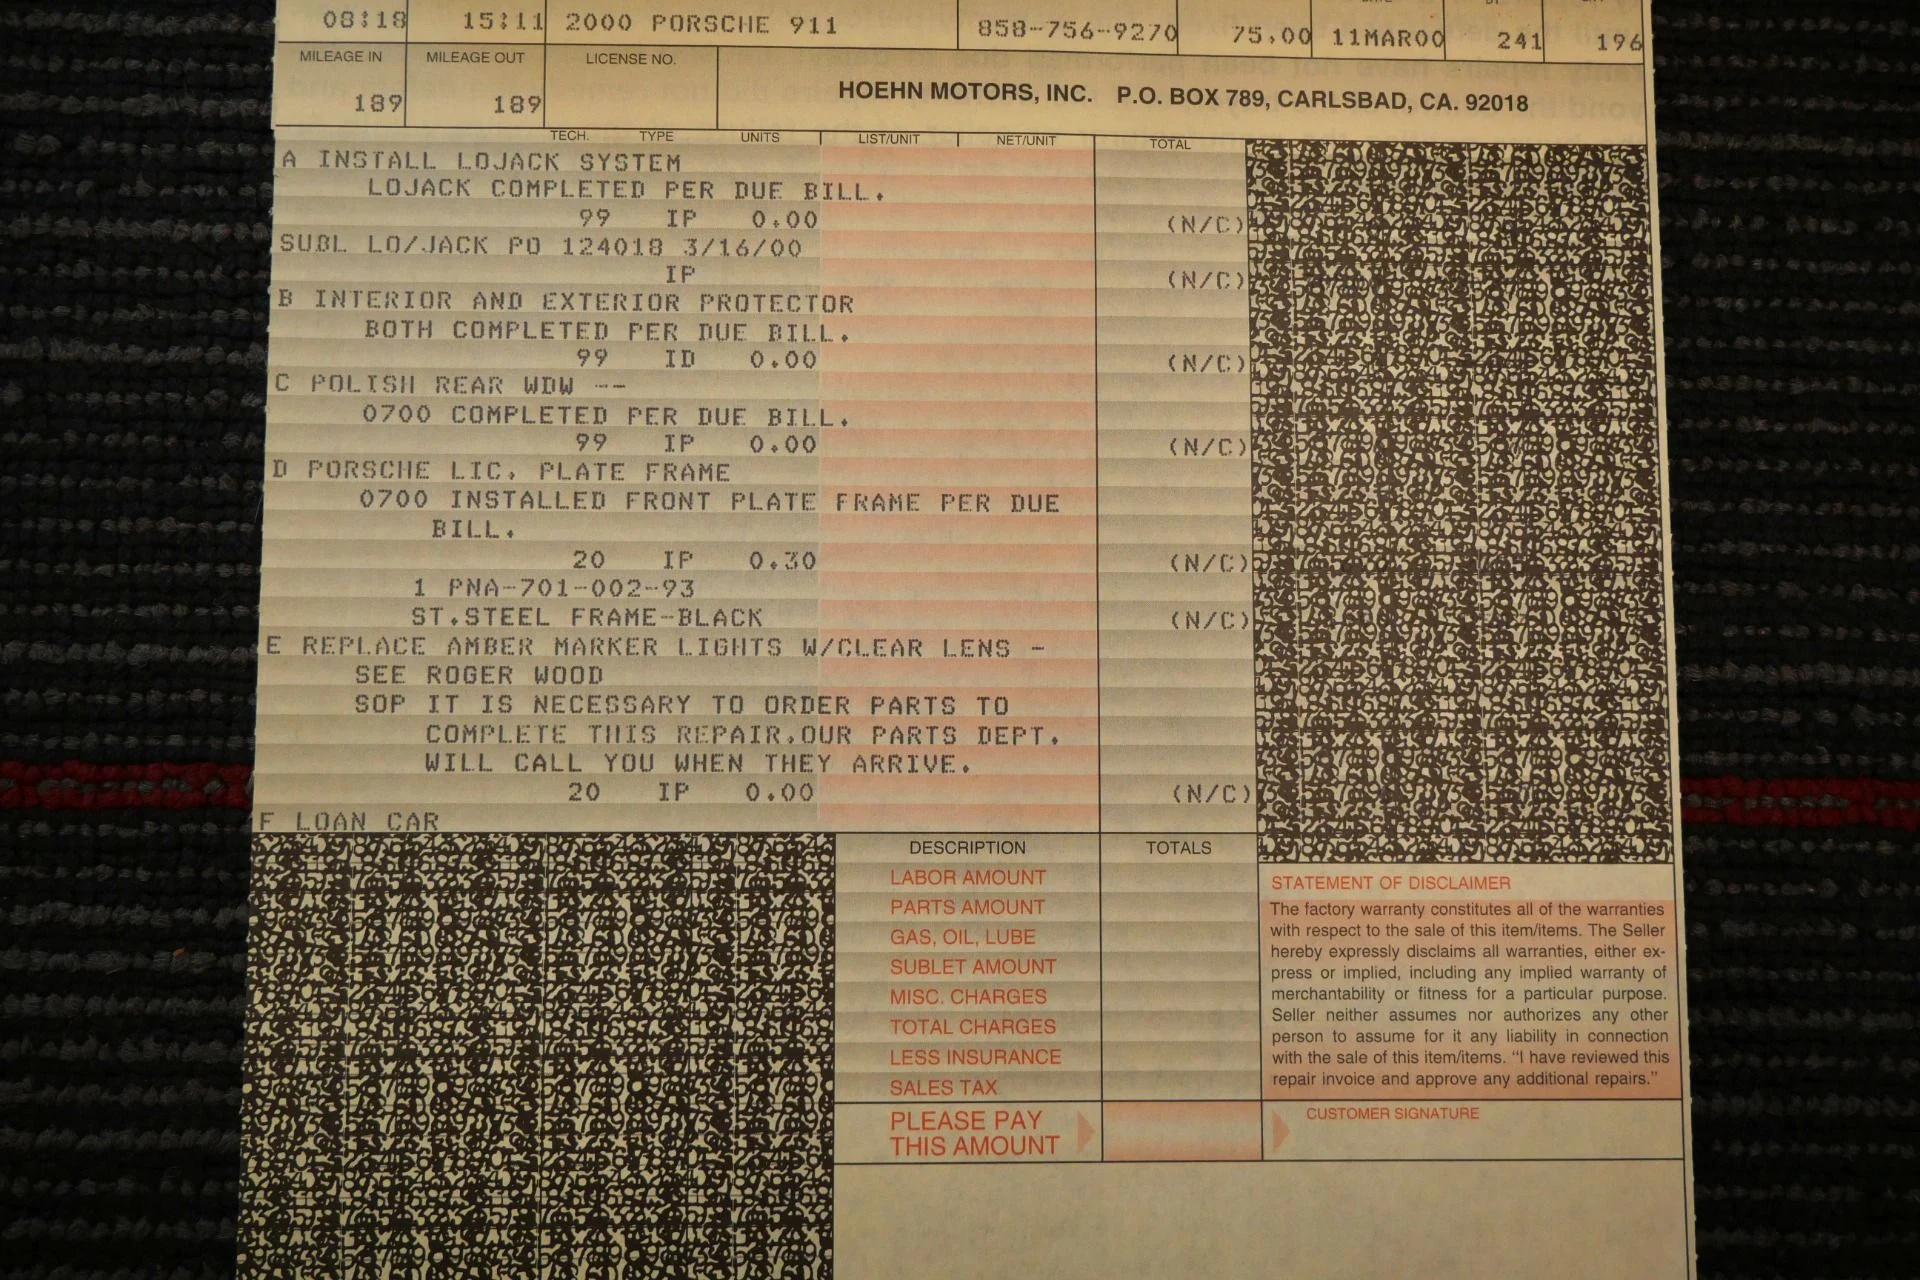 08:18 15:11 2000 PORSCHE 911 858-756-9270 75.00 11MAR00 241 196
MILEAGE IN MILEAGE OUT LICENSE NO.
189 189 HOEHN MOTORS, INC. P.O. BOX 789, CARLSBAD, CA. 92018
TECH. TYPE UNITS LIST/UNIT NET/UNIT TOTAL
A INSTALL LOJACK SYSTEM
LOJACK COMPLETED PER DUE BILL.
99 IP 0.00 (N/C)
SUBL LO/JACK PO 124018 3/16/00
IP (N/C)
B INTERIOR AND EXTERIOR PROTECTOR
BOTH COMPLETED PER DUE BILL.
99 ID 0.00 (N/C)
C POLISH REAR WDW --
0700 COMPLETED PER DUE BILL.
99 IP 0.00 (N/C)
D PORSCHE LIC. PLATE FRAME
0700 INSTALLED FRONT PLATE FRAME PER DUE
BILL.
20 IP 0.30 (N/C)
1 PNA-701-002-93
ST.STEEL FRAME-BLACK (N/C)
E REPLACE AMBER MARKER LIGHTS W/CLEAR LENS -
SEE ROGER WOOD
SOP IT IS NECESSARY TO ORDER PARTS TO
COMPLETE THIS REPAIR.OUR PARTS DEPT.
WILL CALL YOU WHEN THEY ARRIVE.
20 IP 0.00 (N/C)
F LOAN CAR
DESCRIPTION TOTALS
LABOR AMOUNT
PARTS AMOUNT
GAS, OIL, LUBE
SUBLET AMOUNT
MISC. CHARGES
TOTAL CHARGES
LESS INSURANCE
SALES TAX
PLEASE PAY
THIS AMOUNT
STATEMENT OF DISCLAIMER
The factory warranty constitutes all of the warranties
with respect to the sale of this item/items. The Seller
hereby expressly disclaims all warranties, either ex-
press or implied, including any implied warranty of
merchantability or fitness for a particular purpose.
Seller neither assumes nor authorizes any other
person to assume for it any liability in connection
with the sale of this item/items. "I have reviewed this
repair invoice and approve any additional repairs."
CUSTOMER SIGNATURE